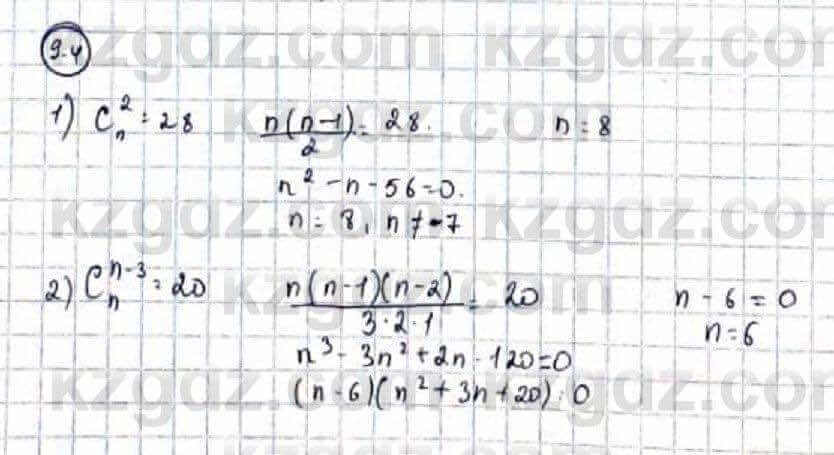 9.4
1) C_n^2 = 28   n(n-1)/2 = 28.   n = 8
n² - n - 56 = 0.
n = 8, n ≠ -7
2) C_n^{n-3} = 20   n(n-1)(n-2)/3·2·1 = 20   n - 6 = 0
n = 6
n³ - 3n² + 2n - 120 = 0
(n-6)(n² + 3n + 20) = 0
kzgdz.com kzgdz.com
kzgdz.com kzgdz.com
kzgdz.com kzgdz.com
kzgdz.com kzgdz.com
kzgdz.com kzgdz.com